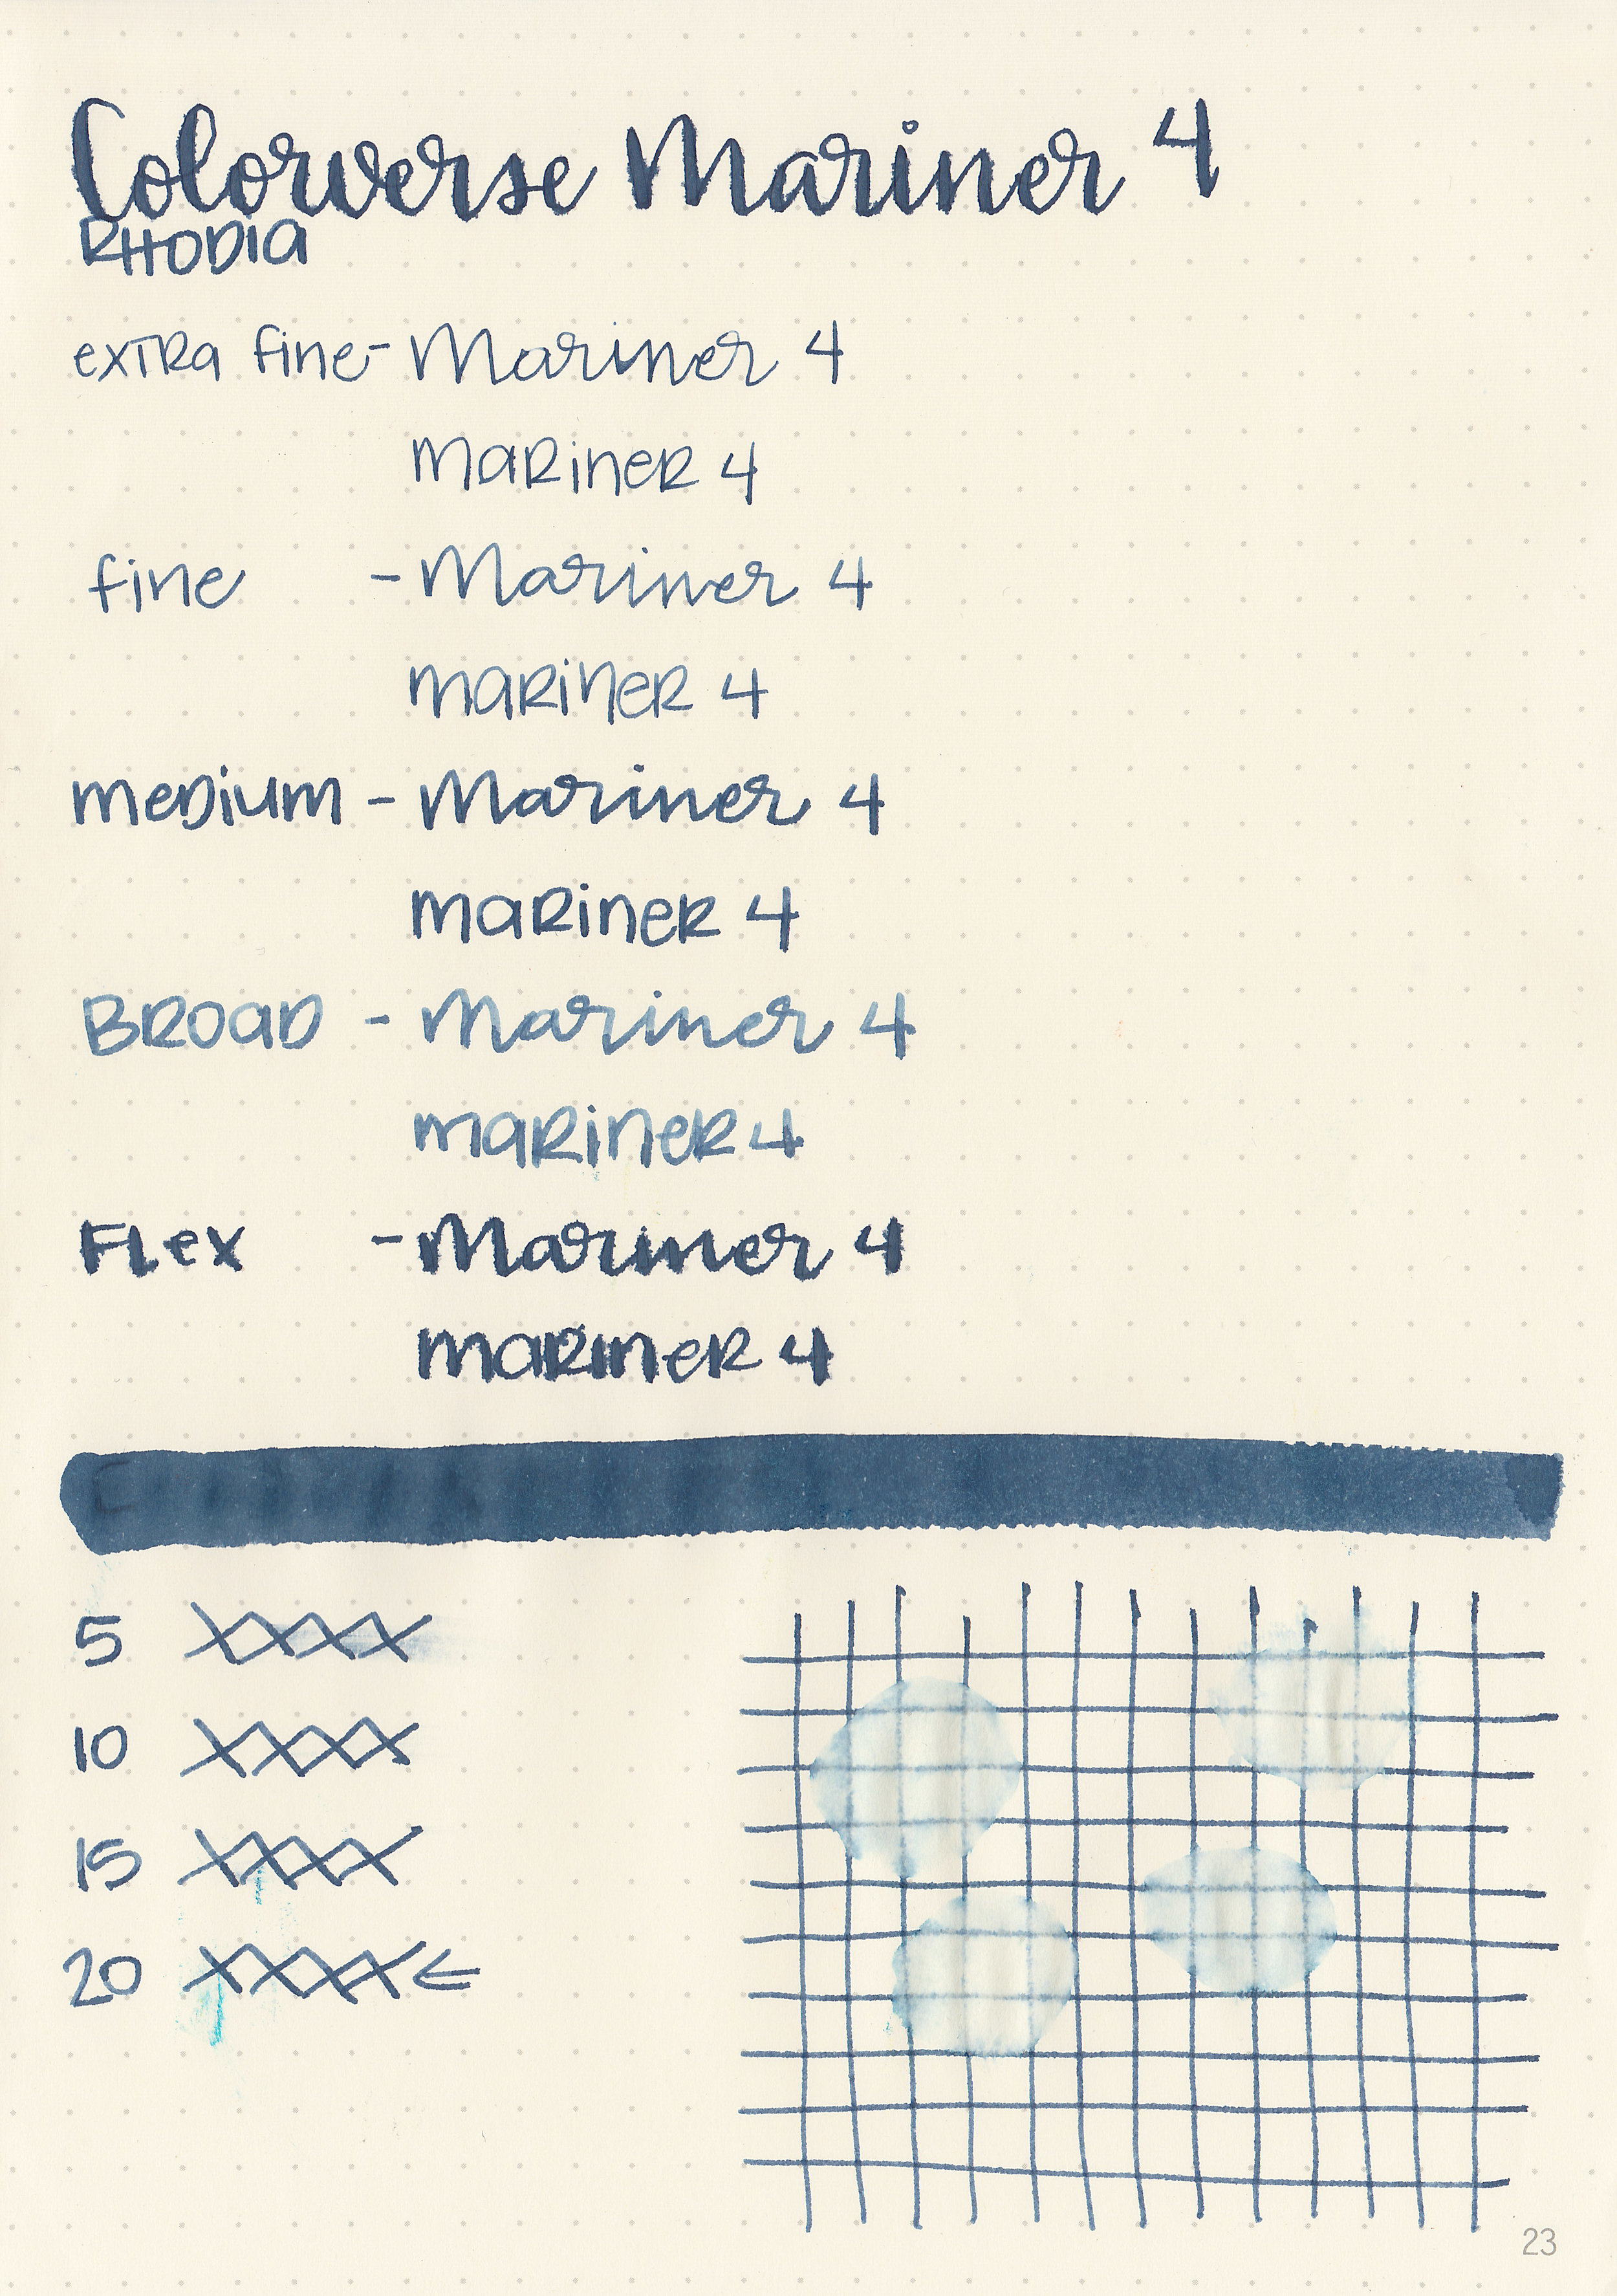 Colorverse Mariner 4
RHODIA
exTRa fine - Mariner 4
maRineR 4
fine - Mariner 4
maRineR 4
meDium - Mariner 4
maRineR 4
BROaD - Mariner 4
maRineR 4
FLex - Mariner 4
maRineR 4
5 XXXX
10 XXXX
15 XXXX
20 XXXX ←
23